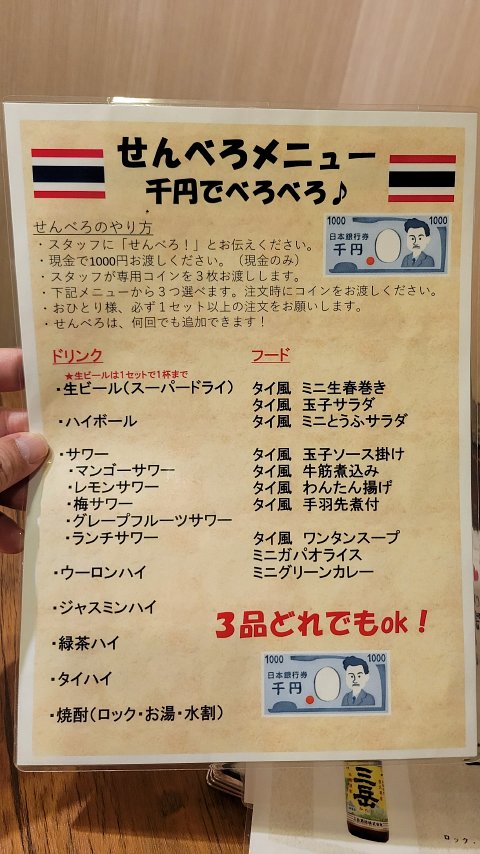 せんべろメニュー
千円でべろべろ♪
せんべろのやり方
・スタッフに「せんべろ！」とお伝えください。
・現金で1000円お渡しください。（現金のみ）
・スタッフが専用コインを３枚お渡しします。
・下記メニューから３つ選べます。注文時にコインをお渡しください。
・おひとり様、必ず１セット以上の注文をお願いします。
・せんべろは、何回でも追加できます！
1000 1000
日本銀行券
千円
ドリンク
★生ビールは1セットで1杯まで
・生ビール（スーパードライ）
・ハイボール
・サワー
・マンゴーサワー
・レモンサワー
・梅サワー
・グレープフルーツサワー
・ランチサワー
・ウーロンハイ
・ジャスミンハイ
・緑茶ハイ
・タイハイ
・焼酎（ロック・お湯・水割）
フード
タイ風 ミニ生春巻き
タイ風 玉子サラダ
タイ風 ミニとうふサラダ
タイ風 玉子ソース掛け
タイ風 牛筋煮込み
タイ風 わんたん揚げ
タイ風 手羽先煮付
タイ風 ワンタンスープ
ミニガパオライス
ミニグリーンカレー
３品どれでもok！
1000 1000
日本銀行券
千円
三岳
ロック・